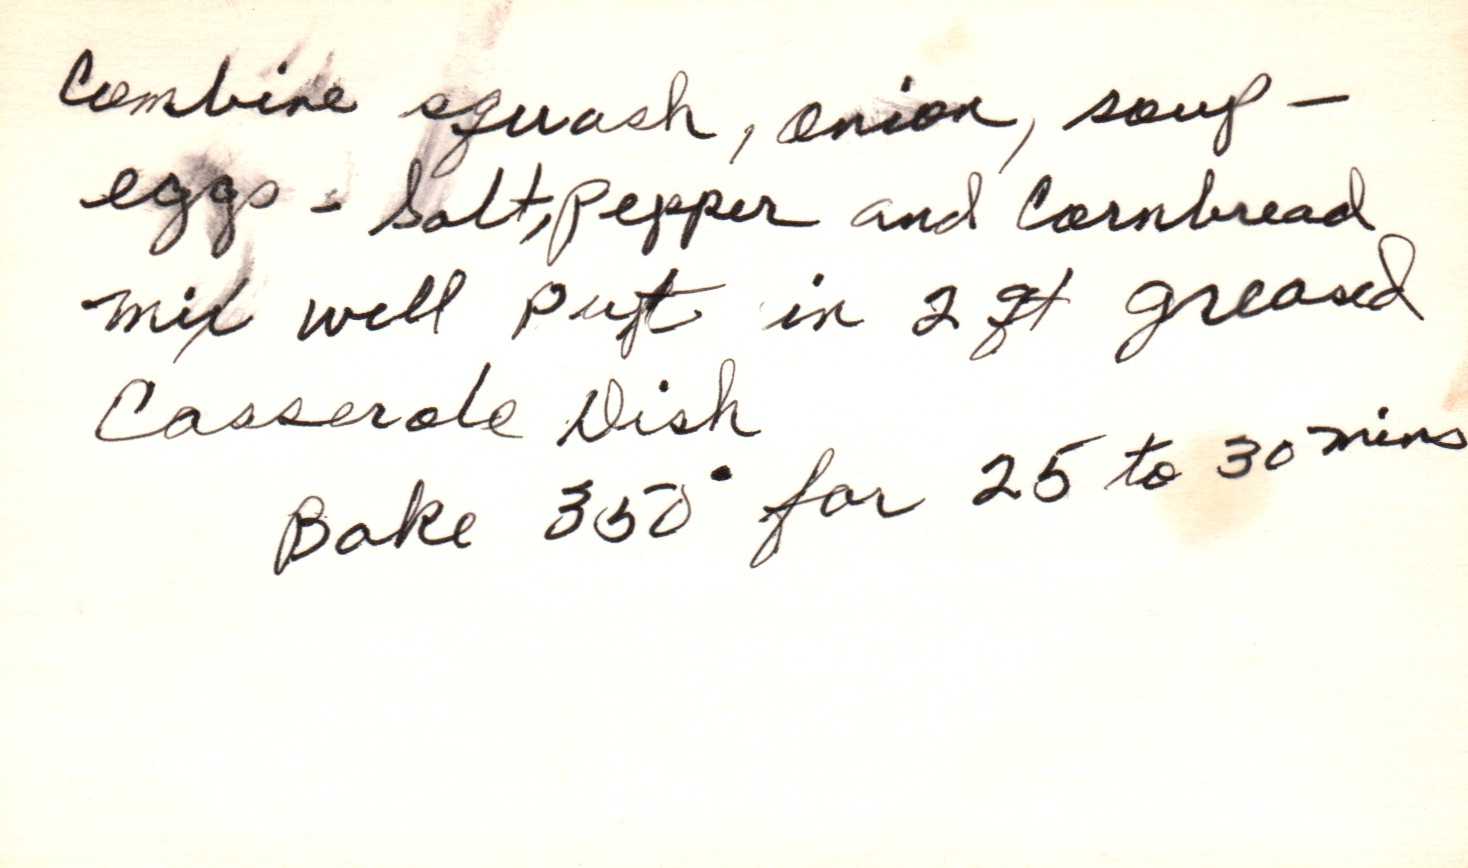 Combine squash, onion, soup –
eggs - Salt, Pepper and Cornbread
mix well Put in 2 qt greased
Casserole Dish
Bake 350° for 25 to 30 mins